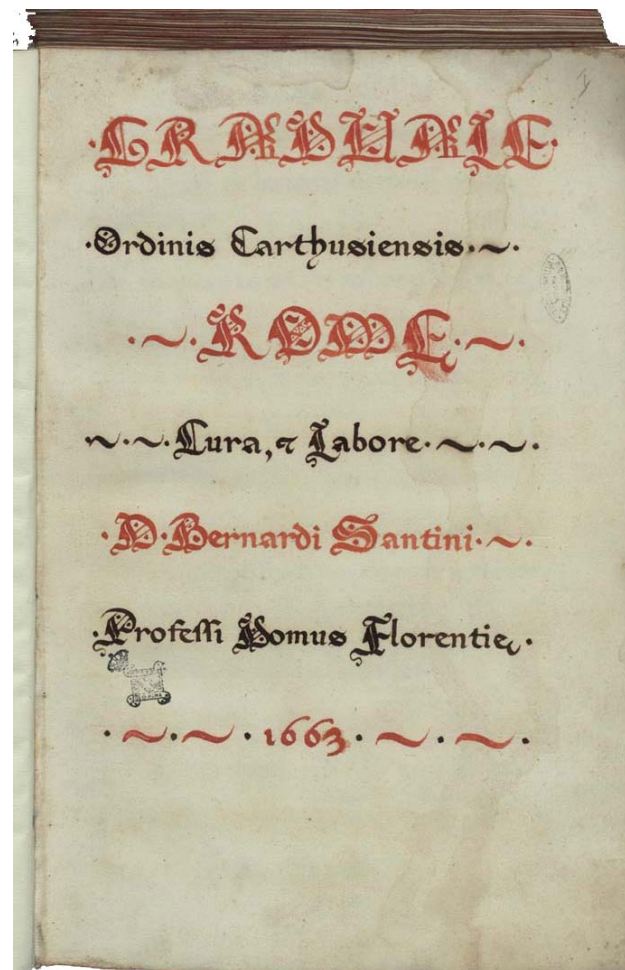 ·GRADUALE·
·Ordinis Carthusiensis·~·
·~·ROME·~·
~·~·Cura, & Labore·~·~·
·D·Bernardi Santini·~·
·Professi Domus Florentię·
·~·~·1663·~·~·